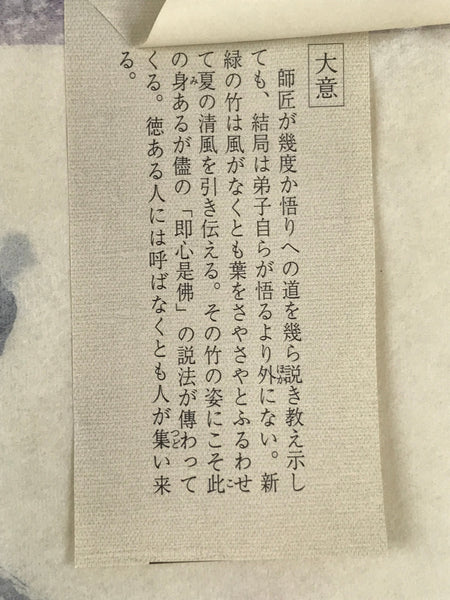 大意
師匠が幾度か悟りへの道を幾ら説き教え示し
ても、結局は弟子自らが悟るより外にない。新
緑の竹は風がなくとも葉をさやさやとふるわせ
て夏の清風を引き伝える。その竹の姿にこそ此
の身あるが儘の「即心是佛」の説法が傳わって
くる。徳ある人には呼ばなくとも人が集い来
る。